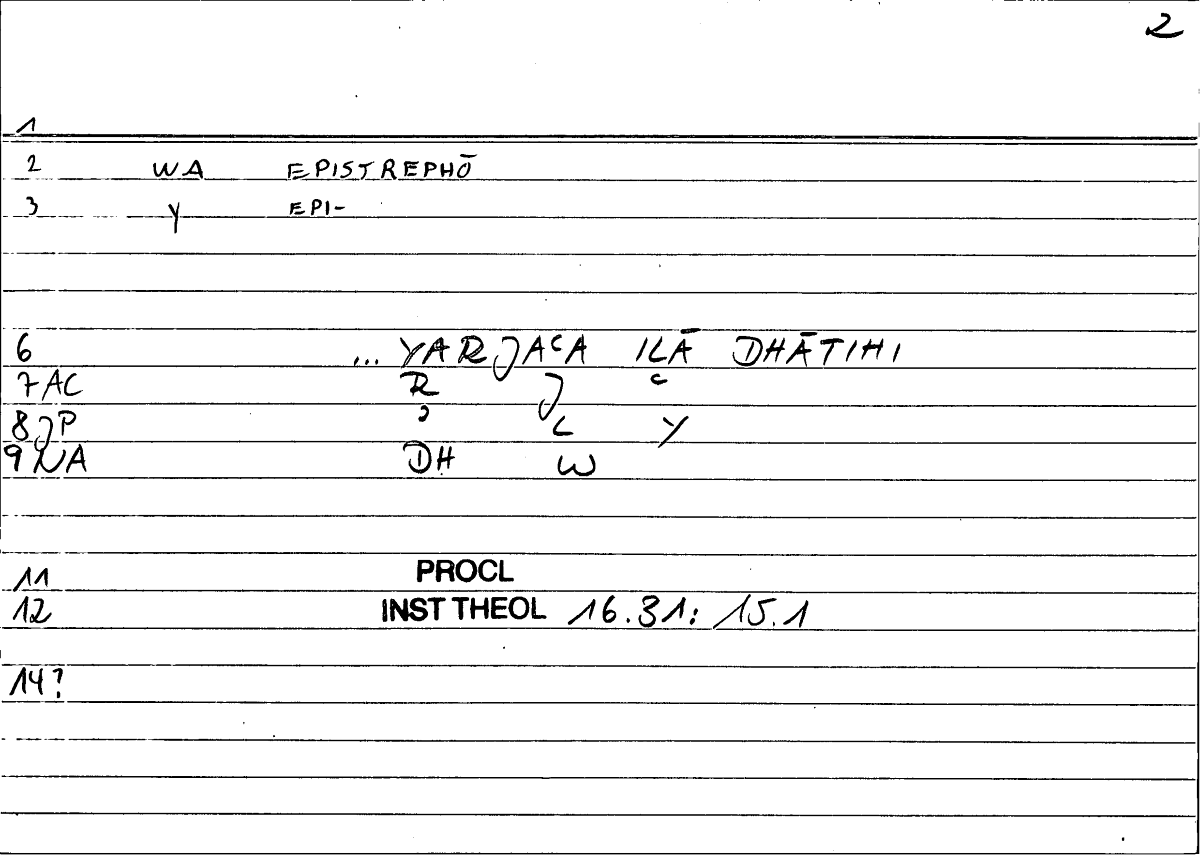 2
1
2 WA EPISTREPHŌ
3 Y EPI-
6 ... YARJAʿA ILĀ DHĀTIHI
7 AC R J ʿ
8 JP ʾ L Y
9 NA DH W
11 PROCL
12 INST THEOL 16.31: 15.1
14?